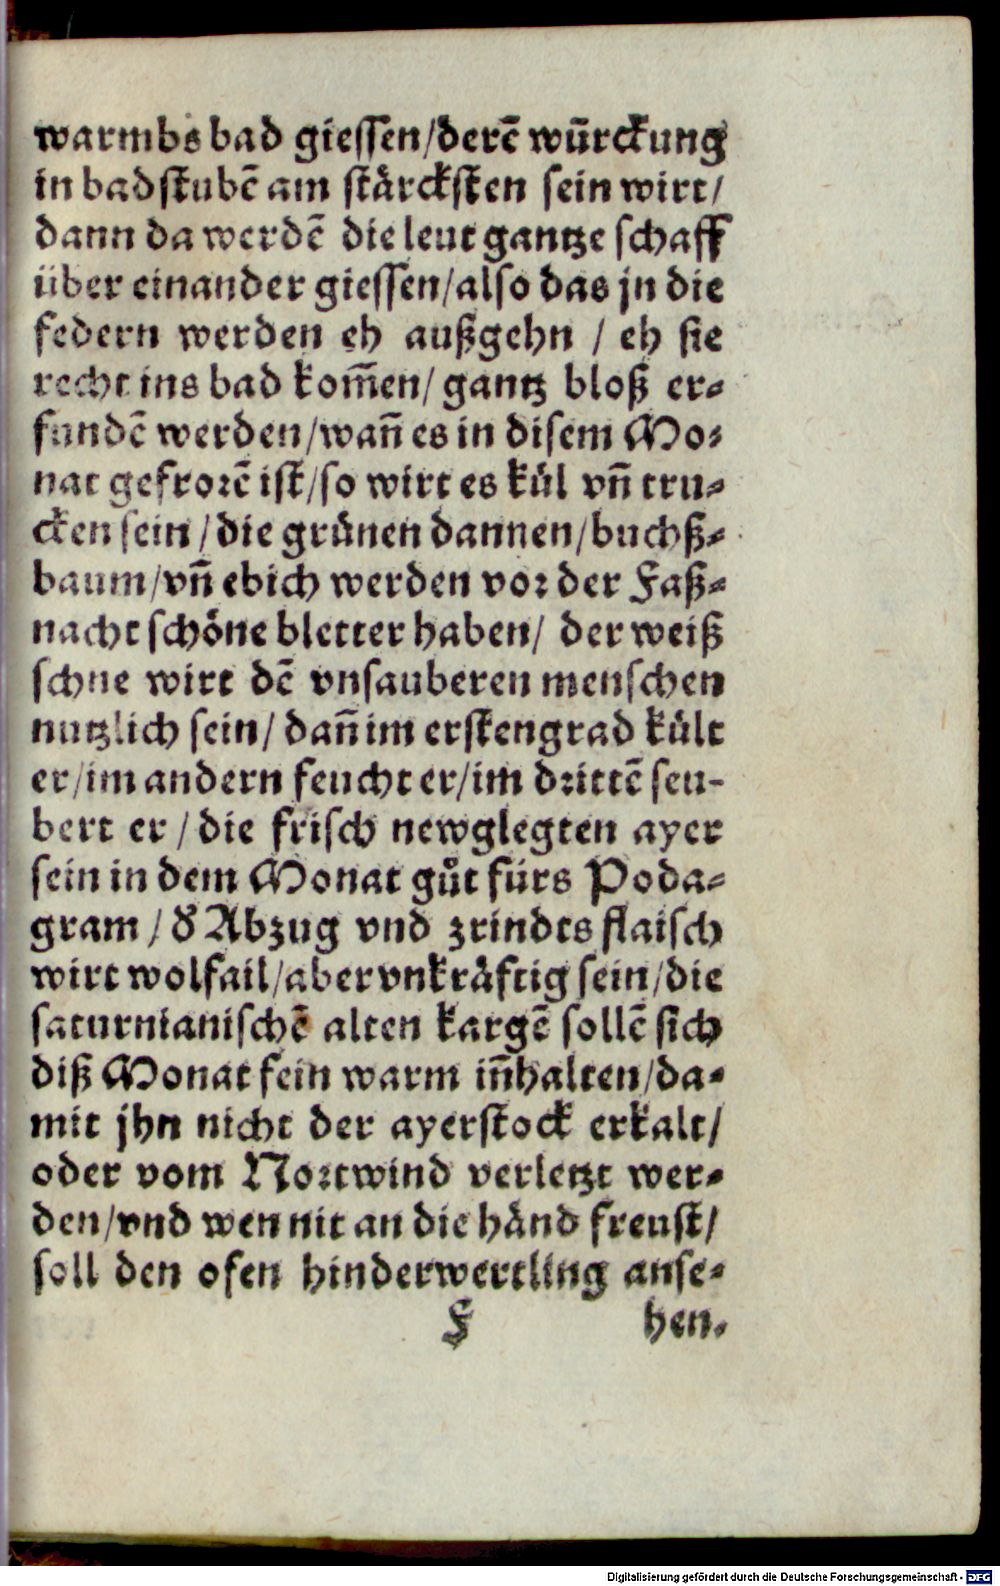 warmbs bad giessen/derē würckung
in badstubē am stärcksten sein wirt/
dann da werdē die leut gantze schaff
über einander giessen/also das jn die
federn werden eh außgehn / eh sie
recht ins bad kom̄en/ gantz bloß er-
fundē werden/wañ es in disem Mo-
nat gefrorē ist/so wirt es kül vñ tru-
cken sein/die grünen dannen/buchß-
baum/vñ ebich werden vor der Faß-
nacht schöne bletter haben/ der weiß
schne wirt dē vnsauberen menschen
nutzlich sein/ dañ im ersten grad kült
er/im andern feucht er/im drittē seu-
bert er / die frisch newglegten ayer
sein in dem Monat gůt fürs Poda-
gram / d' Abzug vnd zrindts flaisch
wirt wolfail/aber vnkräftig sein/die
saturnianischē alten kargē sollē sich
diß Monat fein warm iñhalten/da-
mit jhn nicht der ayerstock erkalt/
oder vom Nortwind verletzt wer-
den/vnd wen nit an die händ freust/
soll den ofen hinderwertling anse-
F hen.
Digitalisierung gefördert durch die Deutsche Forschungsgemeinschaft - DFG